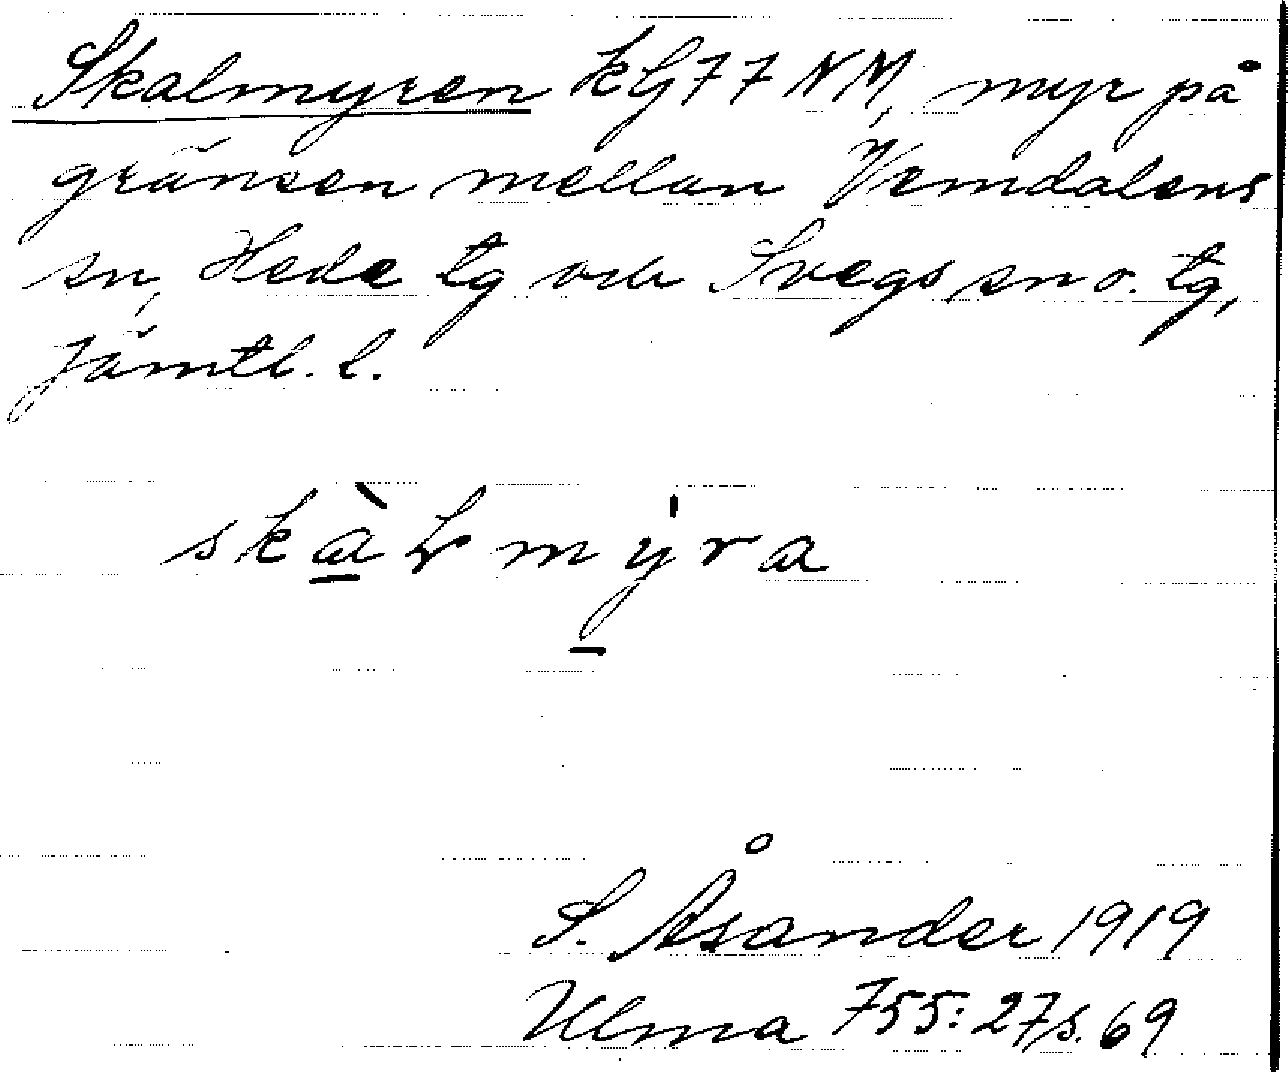 Skalmyren kG77NM, myr på
gränsen mellan Vemdalens
sn, Hede tg och Svegs sn o. tg,
Jämtl. l.
skàɫmýra
S. Åsander 1919
Ulma 755:27 s. 69